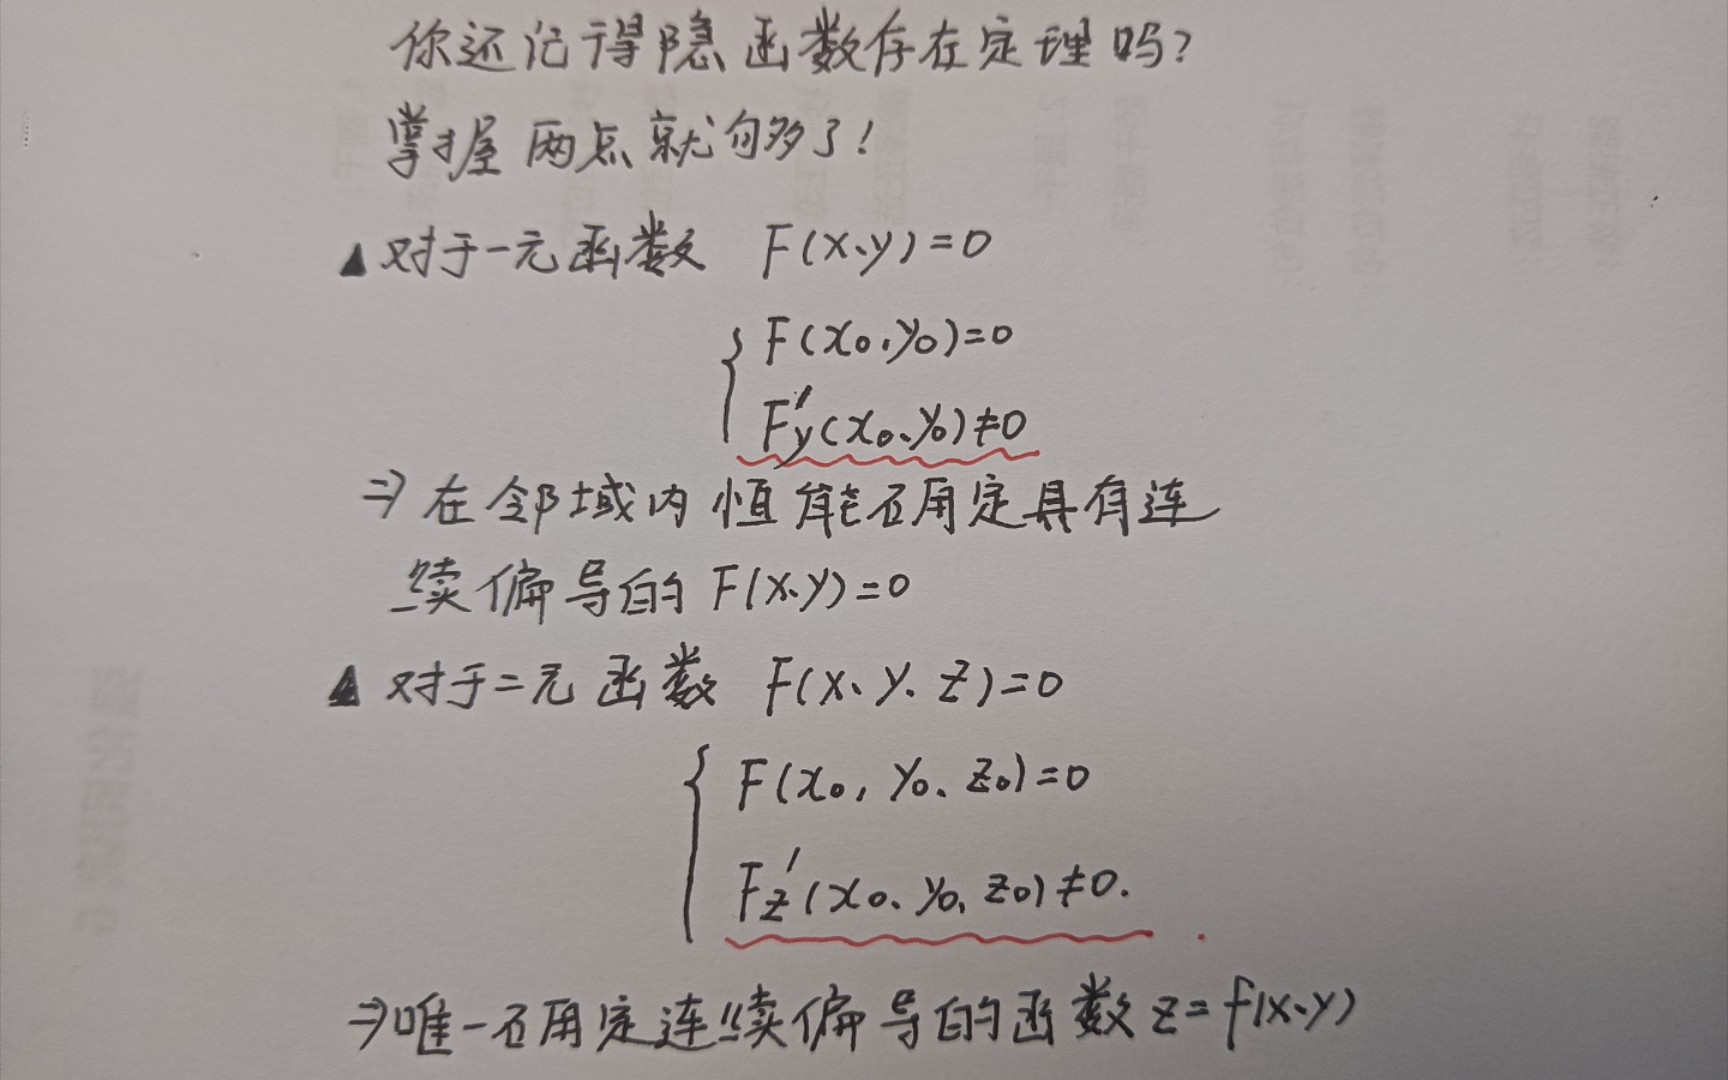 你还记得隐函数存在定理吗?
掌握两点就够了!
▲对于一元函数 F(x、y)=0
F(x₀,y₀)=0
F'y(x₀、y₀)≠0
⇒在邻域内恒能确定具有连
续偏导的F(x、y)=0
▲对于二元函数 F(x、y、z)=0
F(x₀,y₀、z₀)=0
F'z(x₀、y₀,z₀)≠0.
⇒唯一确定连续偏导的函数z=f(x、y)